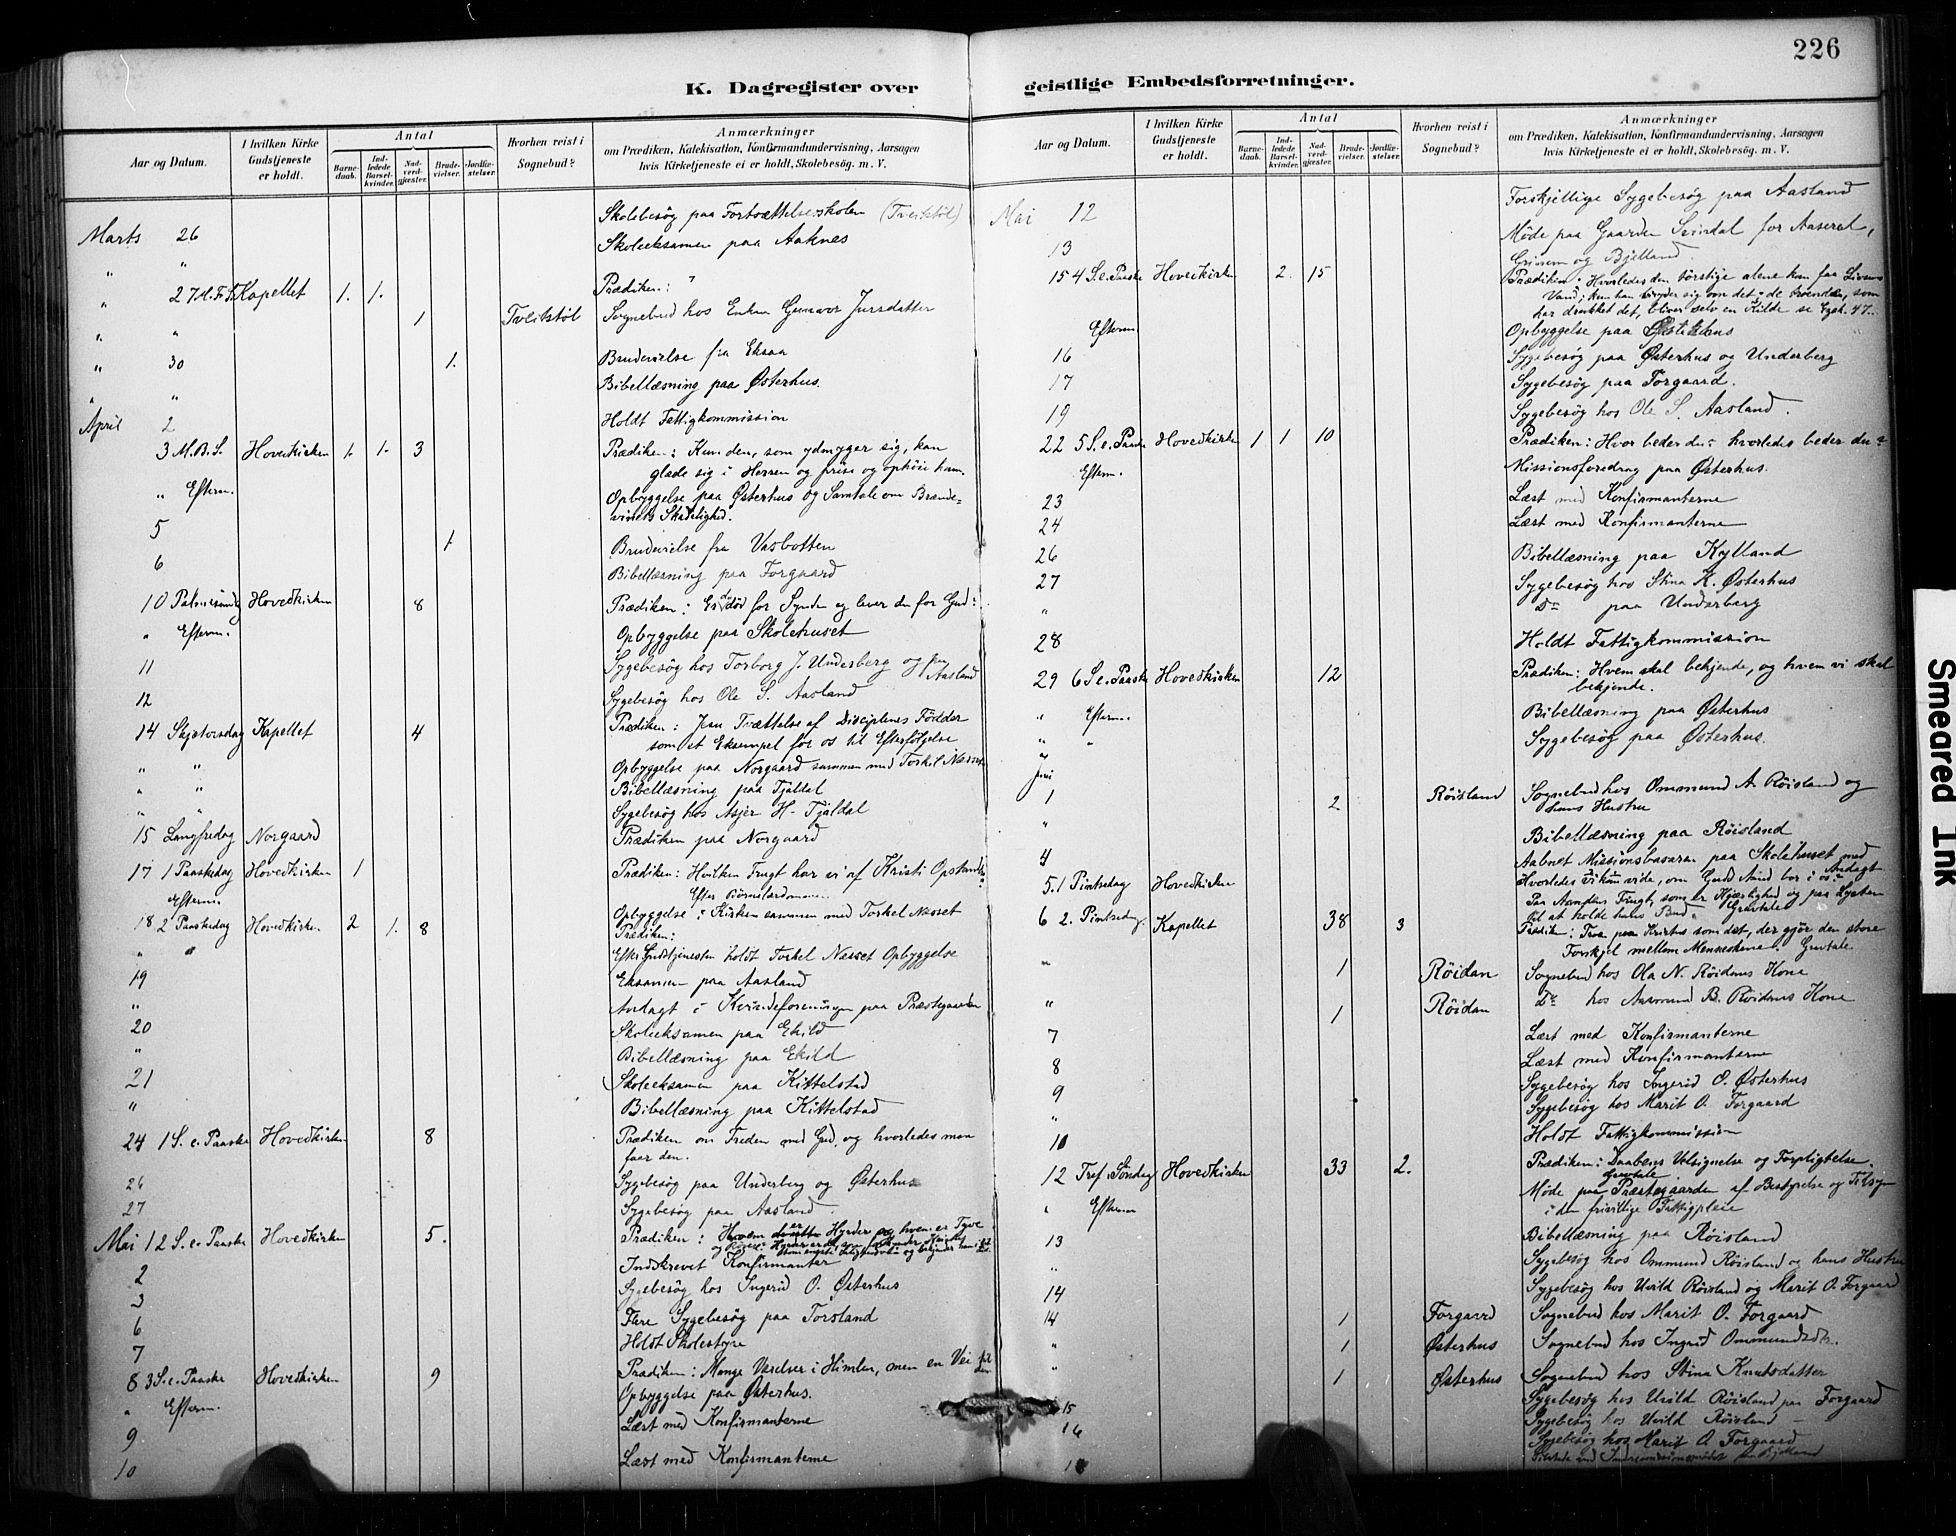 226
K. Dagregister over geistlige Embedsforretninger.
Aar og Datum.
I hvilken Kirke Gudstjeneste er holdt.
Antal
Barnedaab.
Indledede Barselkvinder.
Nadverdgjæster.
Brudevielser.
Jordfæstelser.
Hvorhen reist i Sognebud?
Anmærkninger
om Prædiken, Katekisation, Konfirmandundervisning, Aarsagen
hvis Kirketjeneste ei er holdt, Skolebesøg. m. V.
Marts 26 Skolebesøg paa Fortsættelsesskolen (Tveitstøl)
" " Skoleeksamen paa Aaknes
" 27 M.F.S. Kapellet 1. 1. Prædiken: "
" " 1 Tveitstøl Sognebud hos Enken Gunvor Jursdatter
" 30 1. Brudevielse fra Eksaa
" " Bibellæsning paa Østerhus.
April 2 Holdt Fattigkommission
3 M.B.S. Hovedkirken 1. 1. 3 Prædiken: Kun den, som ydmyger sig, kan
glæde sig i Herren og prise og ophöie ham.
" Efterm. Opbyggelse paa Østerhus og Samtale om Brænde-
vinets Skadelighed.
5 1 Brudevielse fra Vasbotten
6 Bibellæsning paa Forgaard
10 Palmesøndg Hovedkirken 8 Prædiken: Er du død for Synden og lever du for Gud?
" Efterm. Opbyggelse paa Skolehuset
11 Sygebesøg hos Torborg J. Underberg og paa Aasland
12 Sygebesøg hos Ole S. Aasland
14 Skjærtorsdag Kapellet 4 Prædiken: Jesu Tvættelse af Disciplenes Födder
som et Eksempel for os til Efterfölgelse
" " Opbyggelse paa Norgaard sammen med Torkil Næsset
" " Bibellæsning paa Fjaldal
" " Sygebesøg hos Asjer H. Fjaldal
15 Langfredag Norgaard Prædiken paa Norgaard
17 1 Paaskedag Hovedkirken 1 Prædiken: Hvilken Frugt har vi af Kristi Opstandelse?
Efterm. Opbyggelse i Kirken sammen med Torkel Næsset
18 2 Paaskedag Hovedkirken 2 1. 8 Prædiken:
" " Efter Gudstjenesten holdt Torkel Næsset Opbyggelse
19 Eksamen paa Aasland
" Andagt i Kvindeforeningen paa Præstegaarden
20 Skoleeksamen paa Ekild
" Bibellæsning paa Ekild
21 Skoleeksamen paa Kittelstad
" Bibellæsning paa Kittelstad
24 1 S. e. Paaske Hovedkirken 8 Prædiken om Freden med Gud, og hvorledes man
faar den.
26 Sygebesøg paa Underberg og Østerhus
27 Sygebesøg paa Aasland
Mai 1 2 S. e. Paaske Hovedkirken 5. Prædiken: Hvem er Hyrder og hvem er Tyve
2 Indskrevet Konfirmanter
3 Sygebesøg hos Ingerid O. Østerhus
6 Flere Sygebesøg paa Torsland
7 Holdt Skolestyre
8 3 S. e. Paaske Hovedkirken 9 Prædiken: Mange Værelser i Himlen, men en Vei til den.
" Efterm. Opbyggelse paa Østerhus.
9 Læst med Konfirmanterne
10 Læst med Konfirmanterne
Aar og Datum.
I hvilken Kirke Gudstjeneste er holdt.
Antal
Barnedaab.
Indledede Barselkvinder.
Nadverdgjæster.
Brudevielser.
Jordfæstelser.
Hvorhen reist i Sognebud?
Anmærkninger
om Prædiken, Katekisation, Konfirmandundervisning, Aarsagen
hvis Kirketjeneste ei er holdt, Skolebesøg. m. V.
Mai 12 Forskjellige Sygebesøg paa Aasland
13 Møde paa Gaarden Sveindal for Aaseral,
Grinum og Bjelland.
15 4 S. e. Paaske Hovedkirken 2. 15 Prædiken: Hvorledes den törstige alene kan faa Livsens
Vand; kun han bryder sig om det; de troende, som
har drukket det, bliver selv en Kilde se Ezek. 47.
Efterm. Opbyggelse paa Østerhus
16 Sygebesøg paa Østerhus og Underberg
17 Sygebesøg paa Forgaard.
19 Sygebesøg hos Ole S. Aasland.
22 5 S. e. Paaske Hovedkirken 1 1 10 Prædiken: Hvor beder du? hvorledes beder du?
Efterm. Missionsforedrag paa Østerhus.
23 Læst med Konfirmanterne
24 Læst med Konfirmanterne
26 Bibellæsning paa Kylland
27 Sygebesøg hos Stina K. Østerhus
" Do paa Underberg
28 Holdt Fattigkommission
29 6 S. e. Paaske Hovedkirken 12 Prædiken: Hvem skal bekjende, og hvem vi skal
bekjende.
" Efterm. Bibellæsning paa Østerhus
" " Sygebesøg paa Østerhus.
Juni
1 2 Røisland Sognebud hos Ommund A. Røisland og
hans Hustru
" Bibellæsning paa Røisland
4 Aabnet Missionsbasaren paa Skolehuset med Andagt
5 1 Pintsedag Hovedkirken Hvorledes vi kan vide, om Guds Aand bor i os?
Paa Aandens Frugt, som er Kjærlighed og paa Lysten
til at holde hans Bud. Gravtale
6 2. Pintsedag Kapellet 38 3 Prædiken: Troen paa Kristus som det, der gjør den store
Forskjel mellem Menneskene. Gravtale
" 1 Røidan Sognebud hos Ola N. Røidans Kone
" 1 Røidan Do hos Aasmund B. Røidans Kone
7 Læst med Konfirmanterne
8 Læst med Konfirmanterne
9 Sygebesøg hos Ingerid O. Østerhus
" Sygebesøg hos Marit O. Forgaard
10 Holdt Fattigkommission
12 Tref. Söndag Hovedkirken 33 2. Prædiken: Daabens Velsignelse og Forpligtelse.
Gravtale
" Efterm Møde paa Præstegaarden af Bestyrelse og Tilsyn
i den frivillige Fattigpleie
13 Bibellæsning paa Røisland
" Sygebesøg hos Ommund Røisland og hans Hustru
14 Sygebesøg hos Uvild Røisland og Marit O. Forgaard
14 1 Forgaard Sognebud hos Marit O. Forgaard
" 1 Østerhus Sognebud hos Ingrid Ommundsdtr.
" 1 Østerhus Sognebud hos Stina Knutsdatter
15 Sygebesøg hos Uvild Røisland paa Forgaard
16 Sygebesøg hos Uvild Røisland
Sygebesøg hos Marit O. Forgaard
Smeared Ink